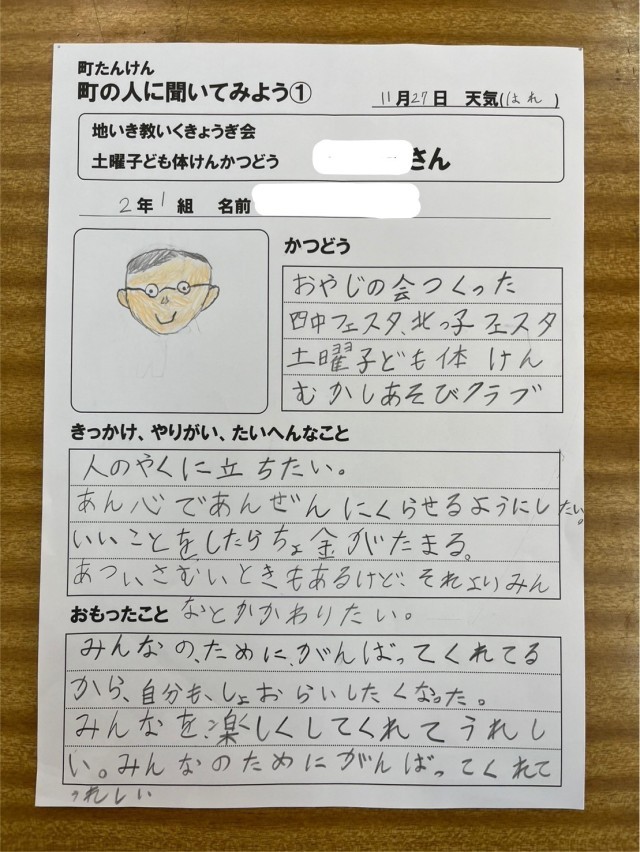 町たんけん
町の人に聞いてみよう①
11月27日 天気(はれ)
地いき教いくきょうぎ会
土曜子ども体けんかつどう さん
2年1組 名前
かつどう
おやじの会つくった
四中フェスタ、北っ子フェスタ
土曜子ども体けん
むかしあそびクラブ
きっかけ、やりがい、たいへんなこと
人のやくに立ちたい。
あん心であんぜんにくらせるようにしたい。
いいことをしたらちょ金がたまる。
あつい、さむいときもあるけど、それよりみん
なとかかわりたい。
おもったこと
みんなの、ために、がんばってくれてる
から、自分も、しょおらいしたくなった。
みんなを、楽しくしてくれてうれし
い。みんなのためにがんばってくれて
うれしい